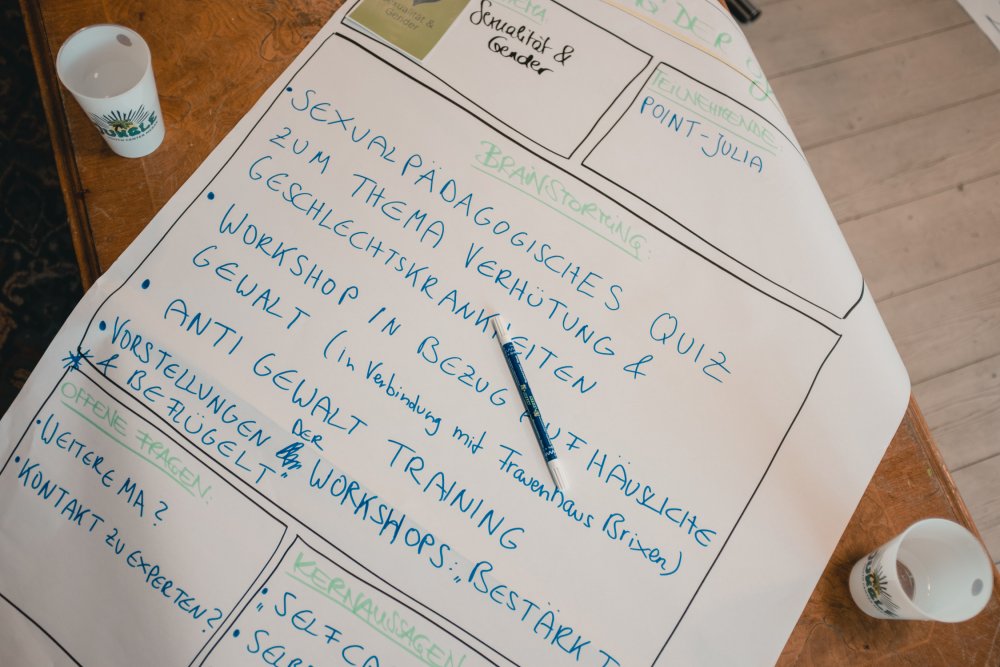 Sexualität &
Gender
THEMA:
Sexualität &
Gender
DER
TEILNEHMENDE:
POINT-JULIA
BRAINSTORMING:
• SEXUALPÄDAGOGISCHES QUIZ
ZUM THEMA VERHÜTUNG &
GESCHLECHTSKRANKHEITEN
• WORKSHOP IN BEZUG AUF HÄUSLICHE
GEWALT (in Verbindung mit Frauenhaus Brixen)
• ANTI GEWALT TRAINING
• VORSTELLUNGEN DER WORKSHOPS: „BESTÄRKT
& BEFLÜGELT"
OFFENE FRAGEN:
• WEITERE MA?
• KONTAKT ZU EXPERTEN?
KERNAUSSAGEN
• SELFCA
• SELB
JUNGLE